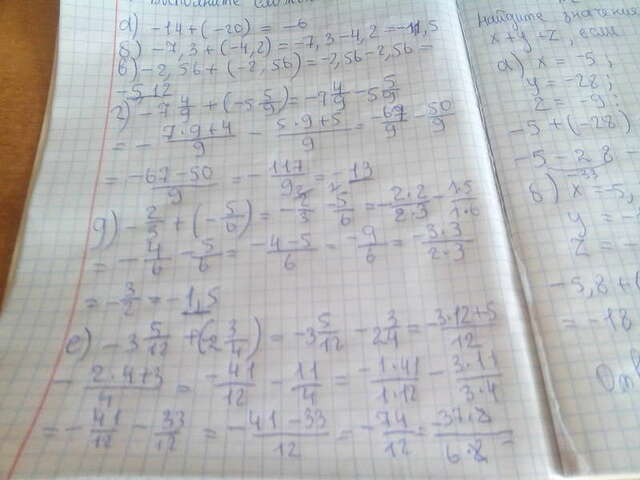 Выполните сложе
а) -14+(-20) = -6
б) -7,3+(-4,2)=-7,3-4,2=-11,5
в) -2,56+(-2,56)=-2,56-2,56=
-5,12
г) -7 4/9 + (-5 5/9) = -7 4/9 - 5 5/9
= - (7·9+4)/9 - (5·9+5)/9 = -67/9 - 50/9
= (-67-50)/9 = -117/9 = -13
д) -2/3 + (-5/6) = -2/3 - 5/6 = -2·2/2·3 - 1·5/1·6
= -4/6 - 5/6 = (-4-5)/6 = -9/6 = -3·3/2·3
= -3/2 = -1,5
е) -3 5/12 + (-2 3/4) = -3 5/12 - 2 3/4 = -(3·12+5)/12
- (2·4+3)/4 = -41/12 - 11/4 = -1·41/1·12 - 3·11/3·4
= -41/12 - 33/12 = -(41-33)/12 = -74/12 = -37·2/6·2 =
найдите значения
x+y+z, если
а) x = -5;
y = -28;
z = -9;
-5+(-28)
-5-28
-33
б) x=-5,
y = -
z = -
-5,8+(
= -18
Отв